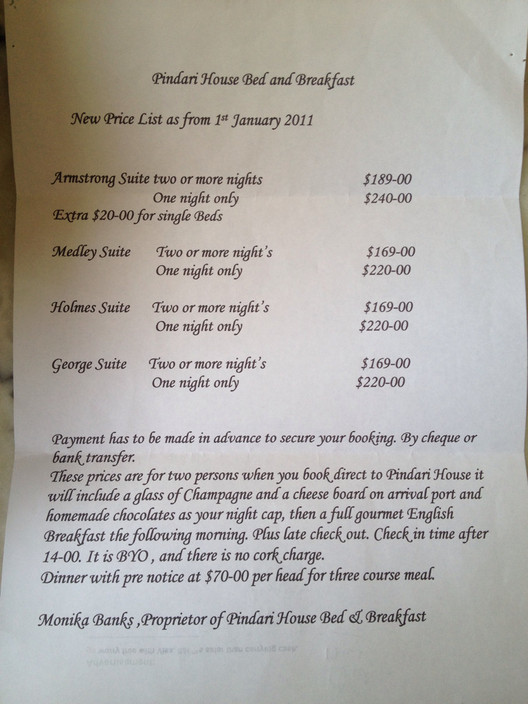 Pindari House Bed and Breakfast
New Price List as from 1st January 2011
Armstrong Suite two or more nights $189-00
One night only $240-00
Extra $20-00 for single Beds
Medley Suite Two or more night's $169-00
One night only $220-00
Holmes Suite Two or more night's $169-00
One night only $220-00
George Suite Two or more night's $169-00
One night only $220-00
Payment has to be made in advance to secure your booking. By cheque or
bank transfer.
These prices are for two persons when you book direct to Pindari House it
will include a glass of Champagne and a cheese board on arrival port and
homemade chocolates as your night cap, then a full gourmet English
Breakfast the following morning. Plus late check out. Check in time after
14-00. It is BYO , and there is no cork charge.
Dinner with pre notice at $70-00 per head for three course meal.
Monika Banks ,Proprietor of Pindari House Bed & Breakfast